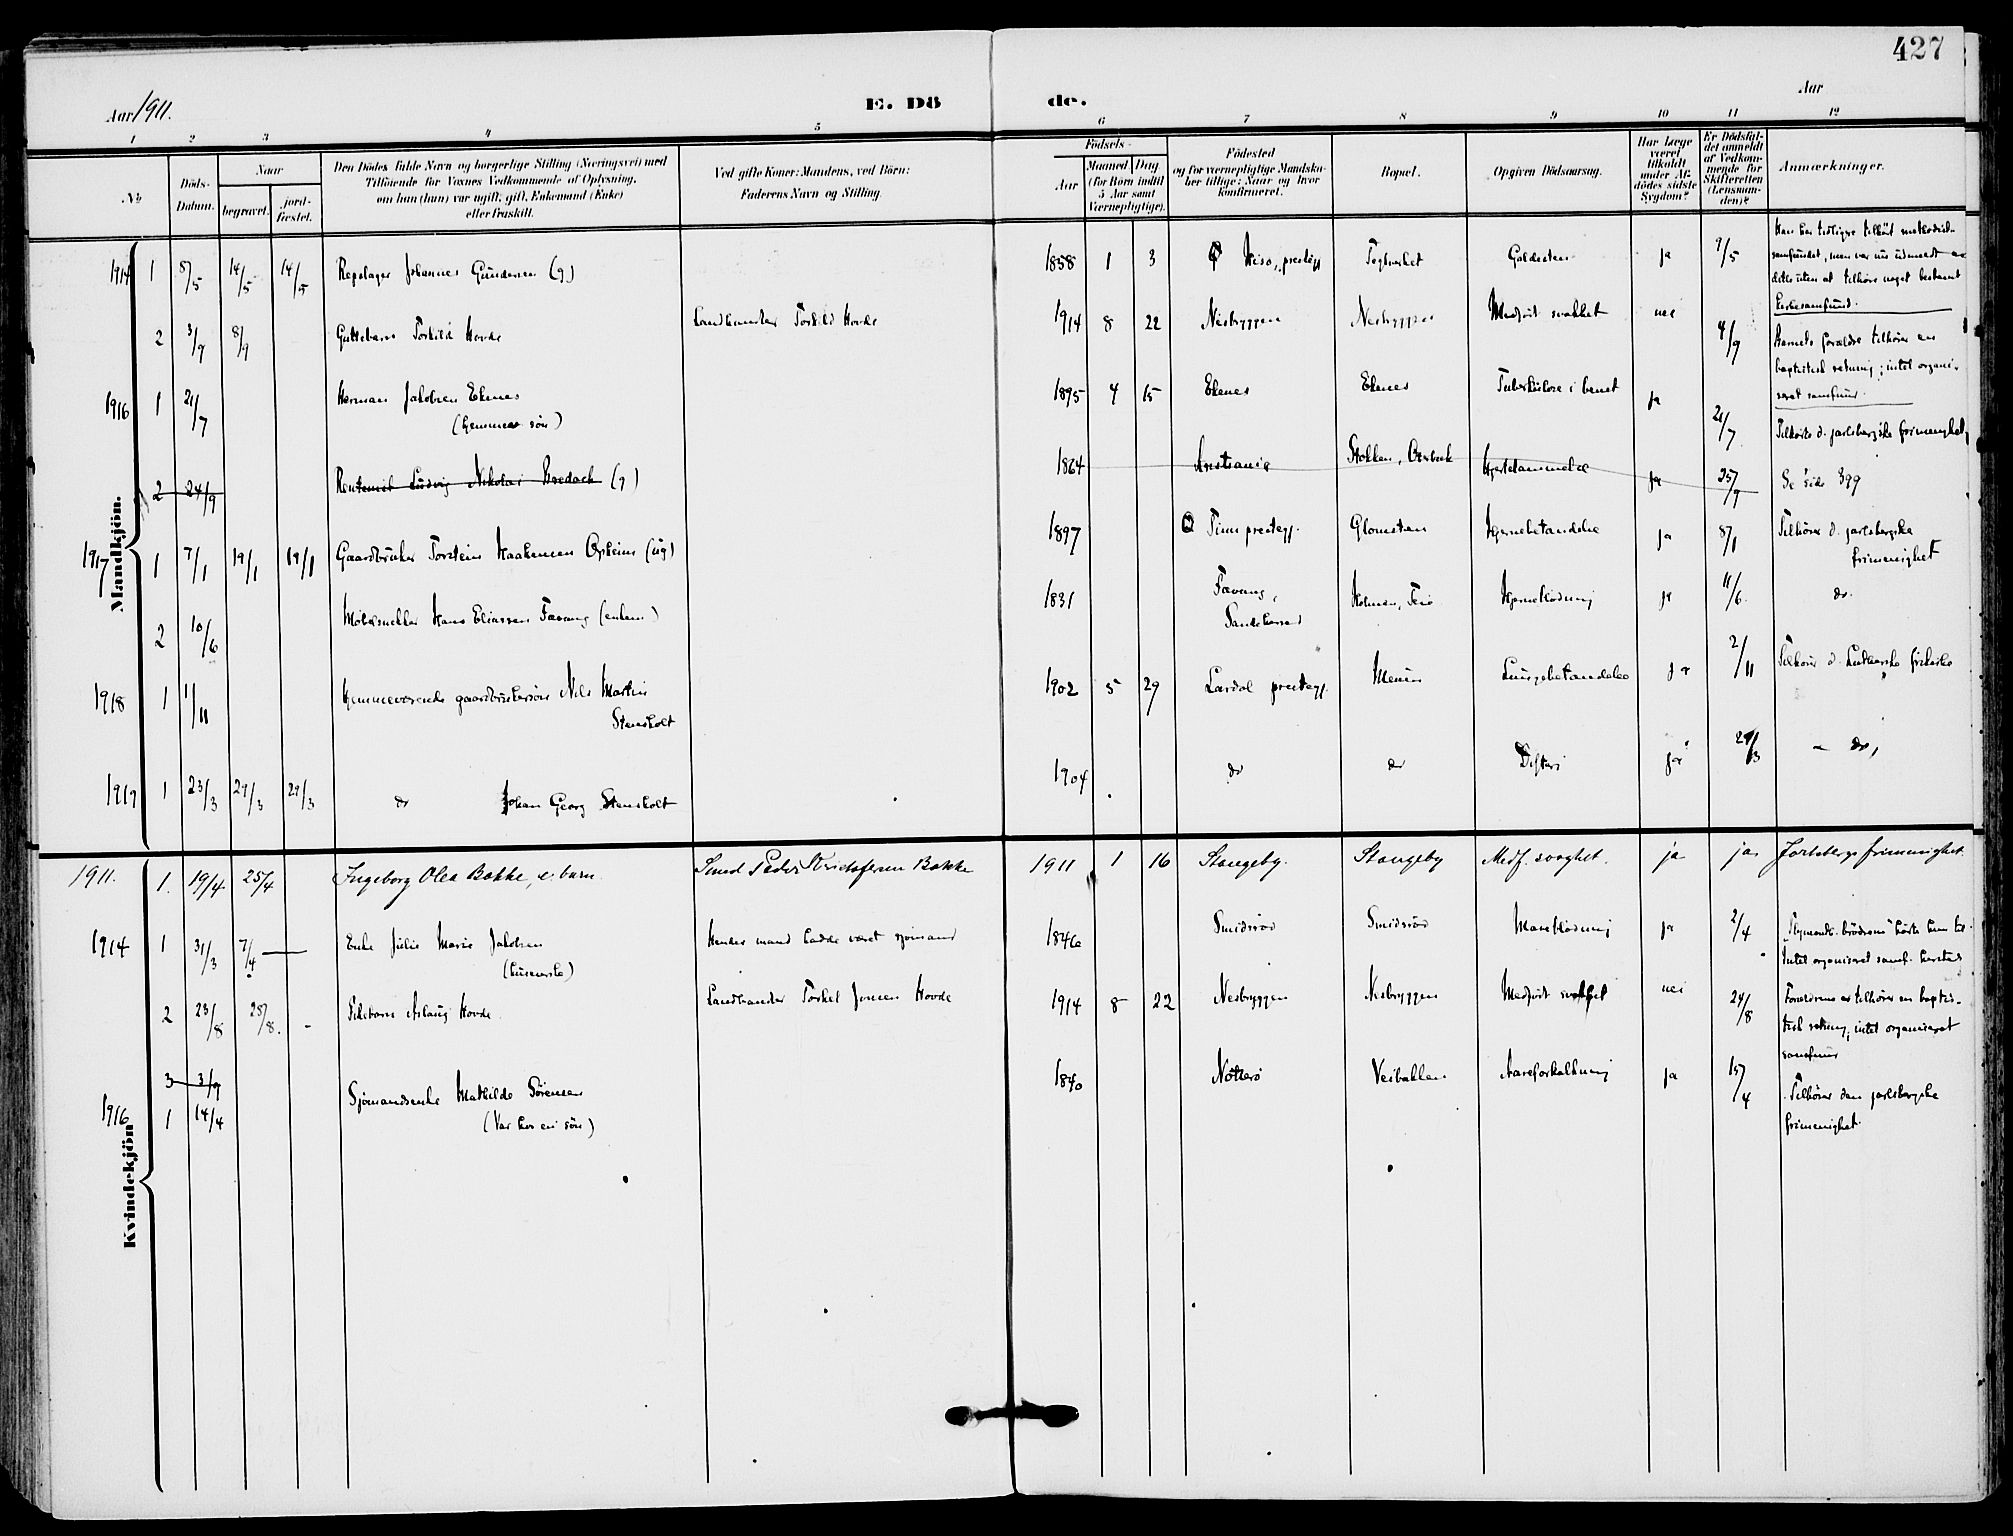 427
Aar 1911.
E. Dö
de.
Aar
1 2 3 4 5 6 7 8 9 10 11 12
No
Döds-Datum.
Naar
begravet.
jord-fæstet.
Den Dödes fulde Navn og borgerlige Stilling (Næringsvei) med
Tilföiende for Voxnes Vedkommende af Oplysning,
om han (hun) var ugift, gift, Enkemand (Enke)
eller fraskilt.
Ved gifte Koner: Mandens, ved Börn:
Faderens Navn og Stilling.
Födsels-
Aar
Maaned Dag
(for Börn indtil
5 Aar samt
Værnepligtige).
Födested
og for værnepligtige Mandska-
ber tillige: Naar og hvor
konfirmeret.
Bopæl.
Opgiven Dödsaarsag.
Har Læge
været
tilkaldt
under Af-
dödes sidste
Sygdom?
Er Dödsfal-
det anmeldt
af Vedkom-
mende for
Skifteretten
(Lensman-
den)?
Anmærkninger.
Mandkjön.
1914 1 8/5 14/5 14/5 Repslager Johannes Gundersen (g) 1858 1 3 Hisø, prestegj Teglverket Galdesten ja 9/5 Han har tidligere tilhørt metodist-
samfundet, men var nu utmeldt av
dette uten at tilhøre noget bestemt
kirkesamfund.
2 3/9 8/9 Guttebarn Torkild Hovde Landhandler Torkild Hovde 1914 8 22 Nesbryggen Nesbryggen Medfødt svakhet nei 4/9 Barnets forældre tilhører en
baptistisk retning; intet organi-
seret samfund.
1916 1 21/7 Herman Jakobsen Ekenes
(hjemmev. søn)
1895 4 15 Ekenes Ekenes Tuberkulose i benet ja 21/7 Tilhørte d. jarlsbergske frimenighet
2 24/9 Rentenist Ludvig Nikolai Bredoch (g) 1864 Kristiania Stokken, Hjertelammelse ja 25/9 Se side 399
1917 1 7/1 19/1 19/1 Gaardbruker Torstein Haakensen (ug) 1897 Tinn prestegj. Glomsten Hjernebetændelse ja 8/1 Tilhører d. jarlsbergske
frimenighet
2 10/6 Møbelsnekker Hans Eliassen Fævang (enkem) 1831 Fævang,
Sandeherred
Holmen, Teie Hjerneblødning ja 11/6 do.
1918 1 1/11 Hjemmeværende gaardbrukersøn Nils Martin
Stensholt
1902 5 29 Lardal prestegj. Menum Lungebetændelse ja 2/11 Tilhører d. Lutherske frikirke
1919 1 23/3 29/3 29/3 do Johan Georg Stensholt 1904 do do Difteri ja 29/3 - do,
Kvindekjön
1911. 1. 19/4 25/4 Ingeborg Olea Bakke, e. barn Smed Peder Kristofersen Bakke 1911 1 16 Stangeby. Stangeby Medf. svaghet. ja ja Jarlsbergs frimenighet.
1914 1 31/3 7/4 — Enke Julie Marie Jakobsen
(husmorske)
Hendes mand hadde været sjømand 1846 Smidsrød Smidsrød Maveblødning ja 2/4 Plymouth-brødrene hørte hun til.
Intet organiseret samf. hersteds
2 23/8 25/8. - Pikebarn Aslaug Hovde. Landhandler Torkel Jonsen Hovde 1914 8 22 Nesbryggen Nesbryggen Medfødt svakhet nei 24/8 Forældrene tilhører en baptis-
tisk retning; intet organiseret
samfund
3 3/9
1916 1 14/4 Sjømandsenke Mathilde Sørensen
(Var hos en søn)
1840 Nøtterø Veibakken Aareforkalkning ja 15/4 Tilhører den jarlsbergske
frimenighet.